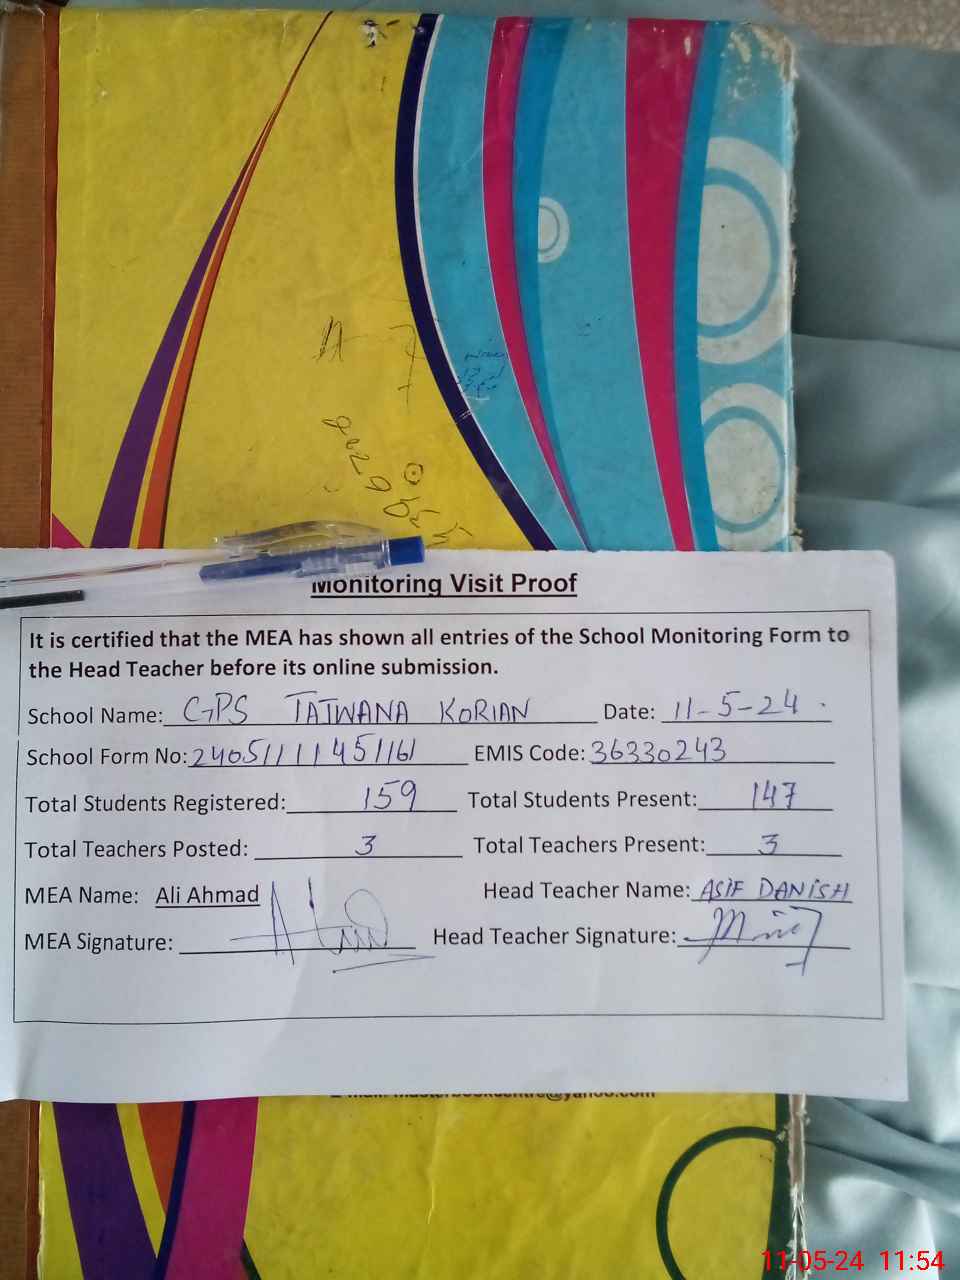 Monitoring Visit Proof
It is certified that the MEA has shown all entries of the School Monitoring Form to
the Head Teacher before its online submission.
School Name: GPS TATWANA KORIAN Date: 11-5-24
School Form No: 24051111451161 EMIS Code: 36330243
Total Students Registered: 159 Total Students Present: 147
Total Teachers Posted: 3 Total Teachers Present: 3
MEA Name: Ali Ahmad Head Teacher Name: ASIF DANISH
MEA Signature: Head Teacher Signature:
11-05-24 11:54